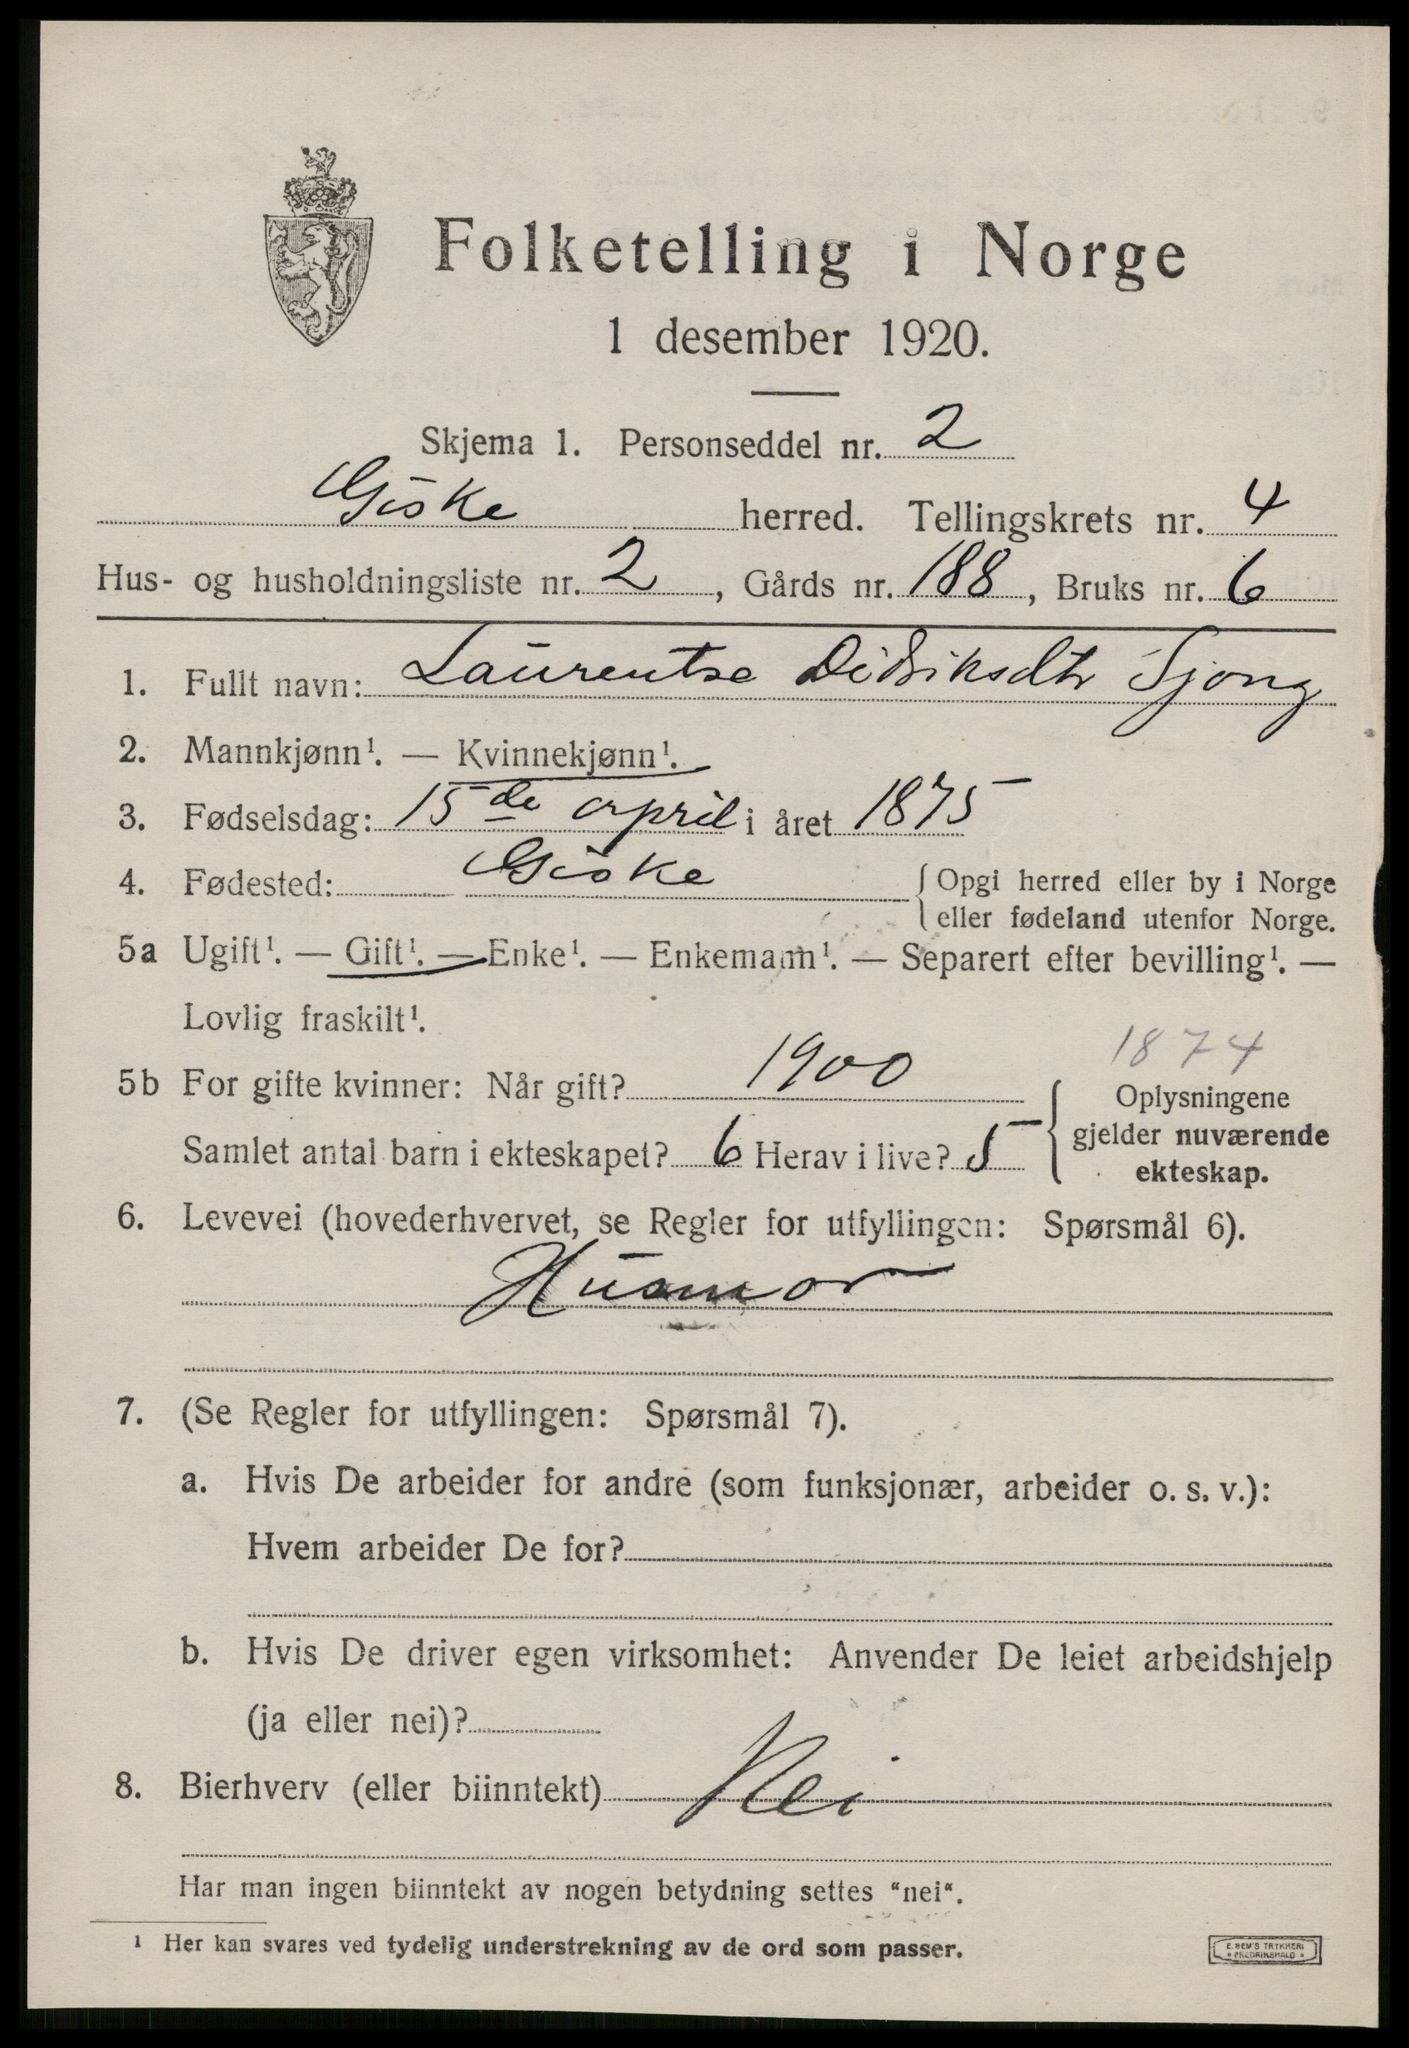 Folketelling i Norge
1 desember 1920.
Skjema 1. Personseddel nr. 2
Giske herred. Tellingskrets nr. 4
Hus- og husholdningsliste nr. 2, Gårds nr. 188, Bruks nr. 6
1. Fullt navn: Laurentse Didriksdtr Sjong
2. Mannkjønn¹. — Kvinnekjønn¹.
3. Fødselsdag: 15de april i året 1875
4. Fødested: Giske { Opgi herred eller by i Norge
eller fødeland utenfor Norge.
5a Ugift¹. — Gift¹. — Enke¹. — Enkemann¹. — Separert efter bevilling¹. —
Lovlig fraskilt¹.
1874
5b For gifte kvinner: Når gift? 1900 Oplysningene
gjelder nuværende
Samlet antal barn i ekteskapet? 6 Herav i live? 5
ekteskap.
6. Levevei (hovederhvervet, se Regler for utfyllingen: Spørsmål 6).
Husmor
7. (Se Regler for utfyllingen: Spørsmål 7).
a. Hvis De arbeider for andre (som funksjonær, arbeider o. s. v.):
Hvem arbeider De for?
b. Hvis De driver egen virksomhet: Anvender De leiet arbeidshjelp
(ja eller nei)?
8. Bierhverv (eller biinntekt) Nei
Har man ingen biinntekt av nogen betydning settes "nei".
¹ Her kan svares ved tydelig understrekning av de ord som passer.
E. SEM'S TRYKKERI
FREDRIKSHALD